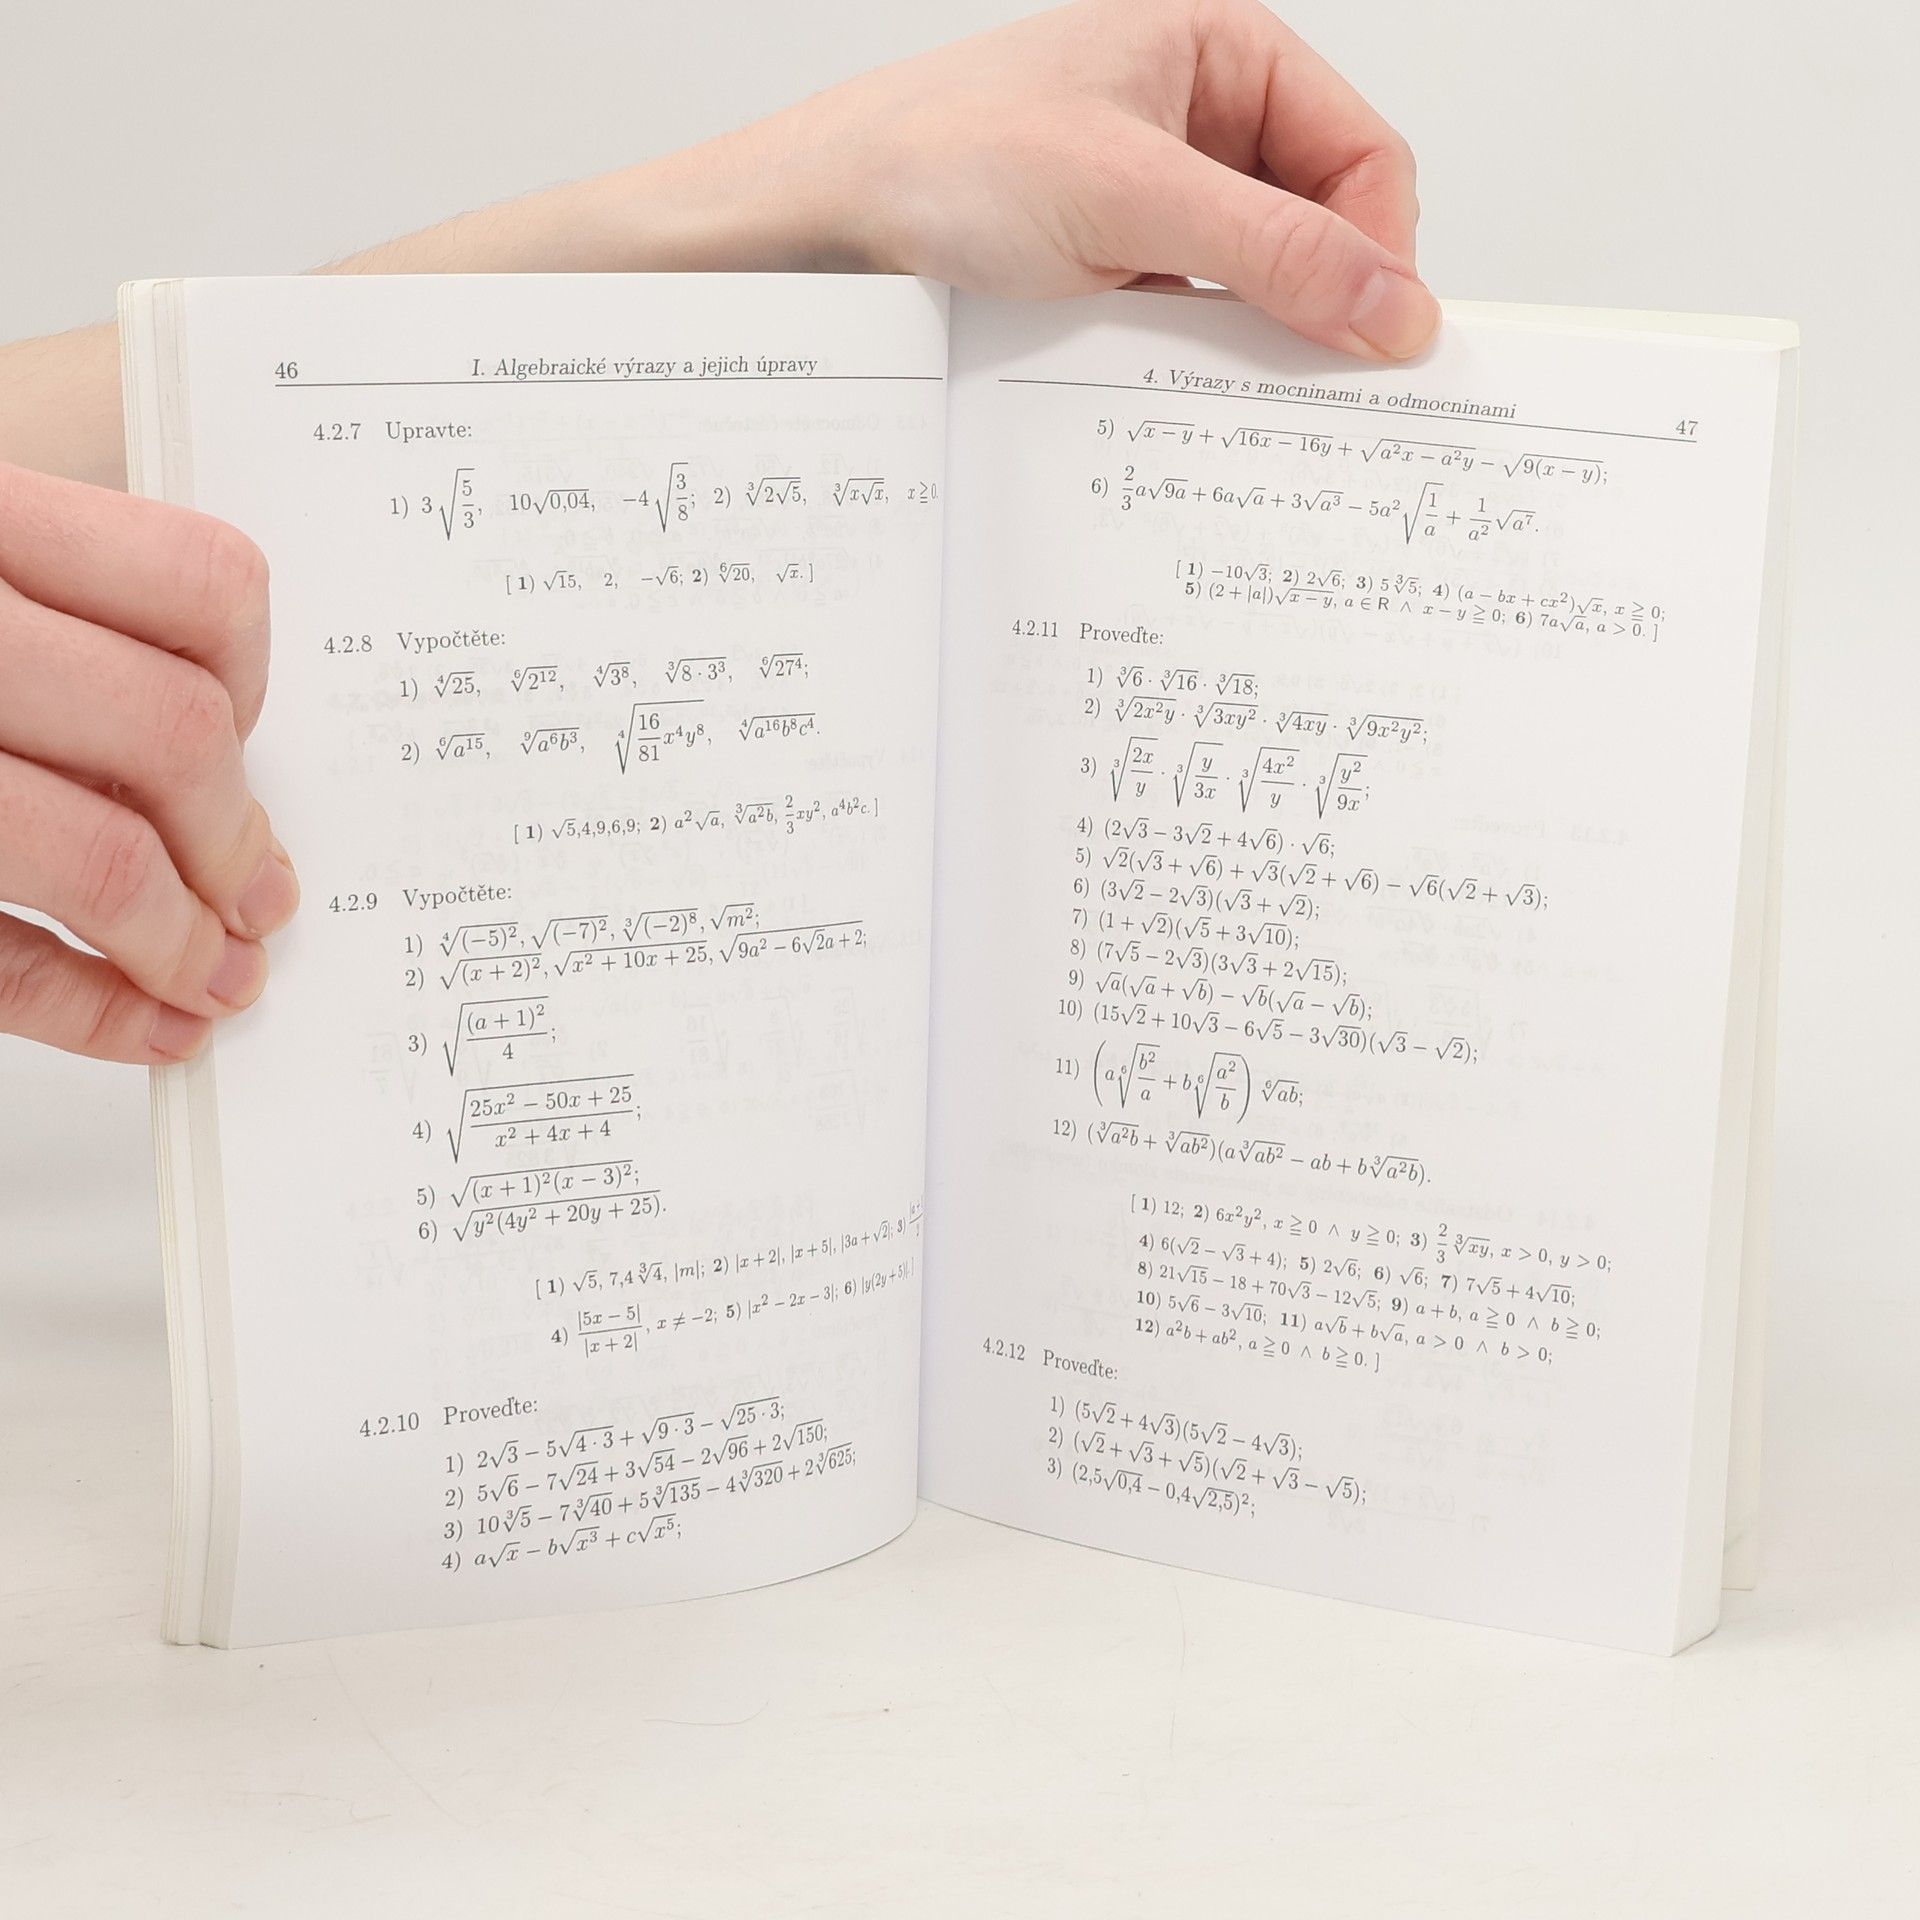 46 I. Algebraické výrazy a jejich úpravy
4.2.7 Upravte:
1) 3√(5/3), 10√0,04, −4√(3/8); 2) ∛(2√5), ∛(x√x), x ≧ 0.
[ 1) √15, 2, −√6; 2) ⁶√20, √x. ]
4.2.8 Vypočtěte:
1) ⁴√25, ⁶√(2¹²), ⁴√(3⁸), ∛(8 · 3³), ⁶√(27⁴);
2) ⁶√(a¹⁵), ⁹√(a⁶b³), ⁴√((16/81)x⁴y⁸), ⁴√(a¹⁶b⁸c⁴).
[ 1) √5,4,9,6,9; 2) a²√a, ∛(a²b), (2/3)xy², a⁴b²c. ]
4.2.9 Vypočtěte:
1) ⁴√((−5)²), √((−7)²), ∛((−2)⁸), √(m²);
2) √((x + 2)²), √(x² + 10x + 25), √(9a² − 6√2a + 2);
3) √((a + 1)²/4);
4) √((25x² − 50x + 25)/(x² + 4x + 4));
5) √((x + 1)²(x − 3)²);
6) √(y²(4y² + 20y + 25)).
[ 1) √5, 7,4∛4, |m|; 2) |x + 2|, |x + 5|, |3a + √2|; 3)
4) |5x − 5|/|x + 2|, x ≠ −2; 5) |x² − 2x − 3|; 6) |y(2y + 5)|. ]
4.2.10 Proveďte:
1) 2√3 − 5√(4 · 3) + √(9 · 3) − √(25 · 3);
2) 5√6 − 7√24 + 3√54 − 2√96 + 2√150;
3) 10∛5 − 7∛40 + 5∛135 − 4∛320 + 2∛625;
4) a√x − b√(x³) + c√(x⁵);
4. Výrazy s mocninami a odmocninami 47
5) √(x − y) + √(16x − 16y) + √(a²x − a²y) − √(9(x − y));
6) (2/3)a√(9a) + 6a√a + 3√(a³) − 5a²√(1/a) + (1/a²)√(a⁷).
[ 1) −10√3; 2) 2√6; 3) 5∛5; 4) (a − bx + cx²)√x, x ≧ 0;
5) (2 + |a|)√(x − y), a ∈ R ∧ x − y ≧ 0; 6) 7a√a, a > 0. ]
4.2.11 Proveďte:
1) ∛6 · ∛16 · ∛18;
2) ∛(2x²y) · ∛(3xy²) · ∛(4xy) · ∛(9x²y²);
3) ∛(2x/y) · ∛(y/3x) · ∛(4x²/y) · ∛(y²/9x);
4) (2√3 − 3√2 + 4√6) · √6;
5) √2(√3 + √6) + √3(√2 + √6) − √6(√2 + √3);
6) (3√2 − 2√3)(√3 + √2);
7) (1 + √2)(√5 + 3√10);
8) (7√5 − 2√3)(3√3 + 2√15);
9) √a(√a + √b) − √b(√a − √b);
10) (15√2 + 10√3 − 6√5 − 3√30)(√3 − √2);
11) (a ⁶√(b²/a) + b ⁶√(a²/b)) ⁶√(ab);
12) (∛(a²b) + ∛(ab²))(a∛(ab²) − ab + b∛(a²b)).
[ 1) 12; 2) 6x²y², x ≧ 0 ∧ y ≧ 0; 3) (2/3)∛(xy), x > 0, y > 0;
4) 6(√2 − √3 + 4); 5) 2√6; 6) √6; 7) 7√5 + 4√10;
8) 21√15 − 18 + 70√3 − 12√5; 9) a + b, a ≧ 0 ∧ b ≧ 0;
10) 5√6 − 3√10; 11) a√b + b√a, a > 0 ∧ b > 0;
12) a²b + ab², a ≧ 0 ∧ b ≧ 0. ]
4.2.12 Proveďte:
1) (5√2 + 4√3)(5√2 − 4√3);
2) (√2 + √3 + √5)(√2 + √3 − √5);
3) (2,5√0,4 − 0,4√2,5)²;